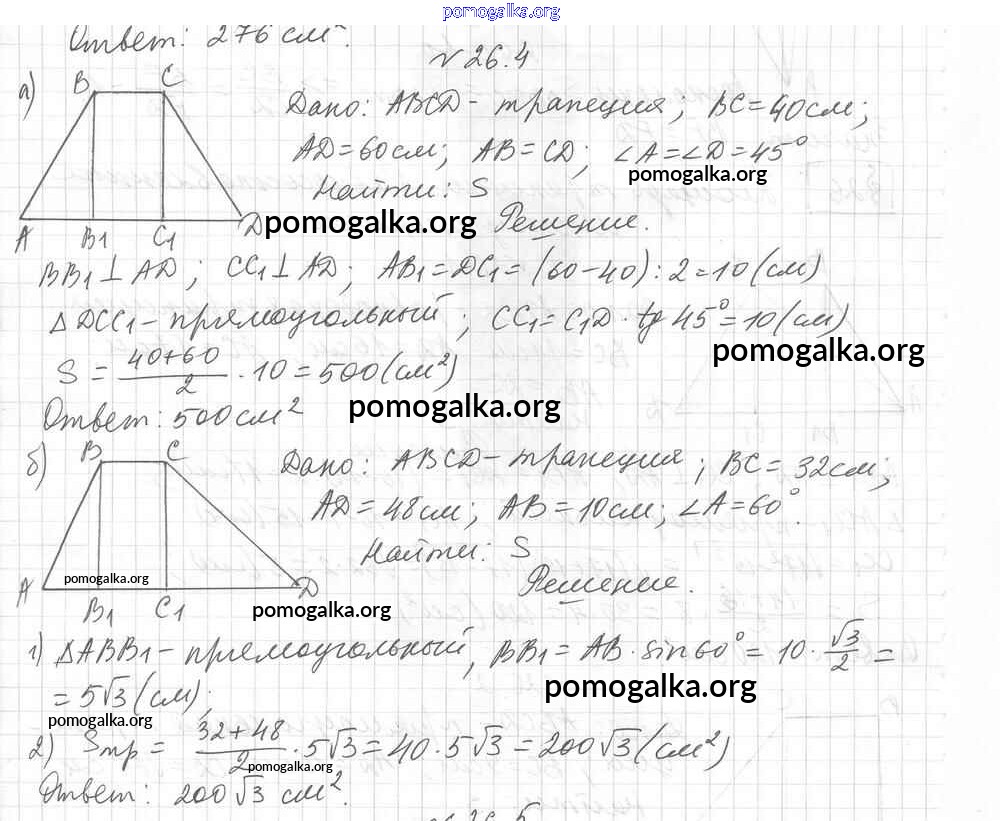 pomogalka.org
Ответ: 276 см².
№26.4
а)
B C
Дано: ABCD - трапеция; BC = 40см;
AD = 60см; AB = CD; ∠A = ∠D = 45°
pomogalka.org
Найти: S
A B1 C1 D
pomogalka.org
Решение.
BB1 ⊥ AD; CC1 ⊥ AD; AB1 = DC1 = (60-40) : 2 = 10 (см)
Δ DCC1 - прямоугольный; CC1 = C1D · tg 45° = 10 (см)
pomogalka.org
S = (40+60)/2 · 10 = 500 (см²)
Ответ: 500 см²
pomogalka.org
б)
B C
Дано: ABCD - трапеция; BC = 32см;
AD = 48см; AB = 10см; ∠A = 60°.
Найти: S
pomogalka.org
Решение.
A B1 C1 D
pomogalka.org
1) ΔABB1 - прямоугольный, BB1 = AB · sin60° = 10 · √3/2 =
= 5√3 (см);
pomogalka.org
pomogalka.org
2) Sтр = (32+48)/2 · 5√3 = 40 · 5√3 = 200√3 (см²)
pomogalka.org
Ответ: 200√3 см².